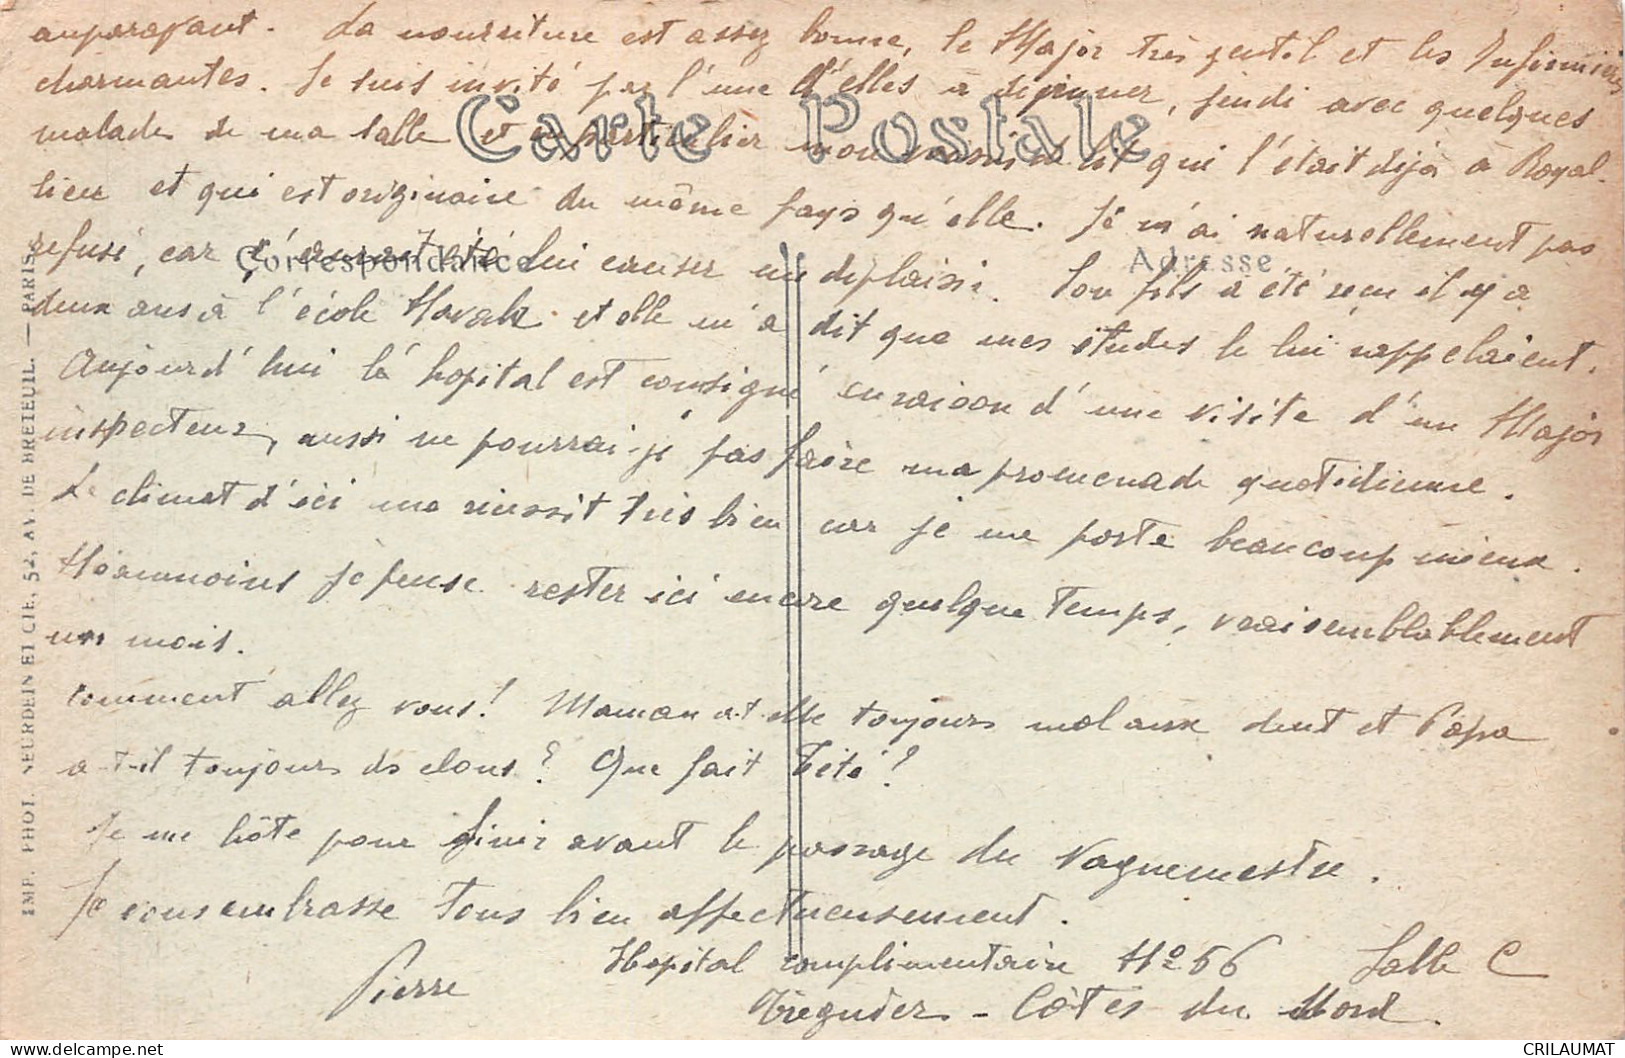 auparavant. La nourriture est assez bonne, le Major très gentil et les Infirmières
charmantes. Je suis invité par l'une d'elles à déjeuner, jeudi avec quelques
malades de ma salle et en particulier mon voisin de lit qui l'était déjà à Royal-
lieu et qui est originaire du même pays qu'elle. Je n'ai naturellement pas
refusé, car ç'aurait été lui causer un déplaisir. Son fils a été reçu il y a
deux ans à l'école Navale et elle m'a dit que mes études le lui rappelaient.
Aujourd'hui l'hopital est consigné en raison d'une visite d'un Major
inspecteur, aussi ne pourrai-je pas faire ma promenade quotidienne.
Le climat d'ici me réussit très bien car je me porte beaucoup mieux.
Néanmoins je pense rester ici encore quelque temps, vraisemblablement
un mois.
Comment allez vous! Maman a-t-elle toujours mal aux dent et Papa
a-t-il toujours des clous? Que fait Tété?
Je me hâte pour finir avant le passage du Vaguemestre.
Je vous embrasse tous bien affectueusement.
Pierre
Hopital complimentaire No 66 Salle C
Tréguier - Côtes du Nord.
Carte Postale
Correspondance
Adresse
IMP. PHOT. NEURDEIN ET CIE, 52, AV. DE BRETEUIL. — PARIS.
CRILAUMAT